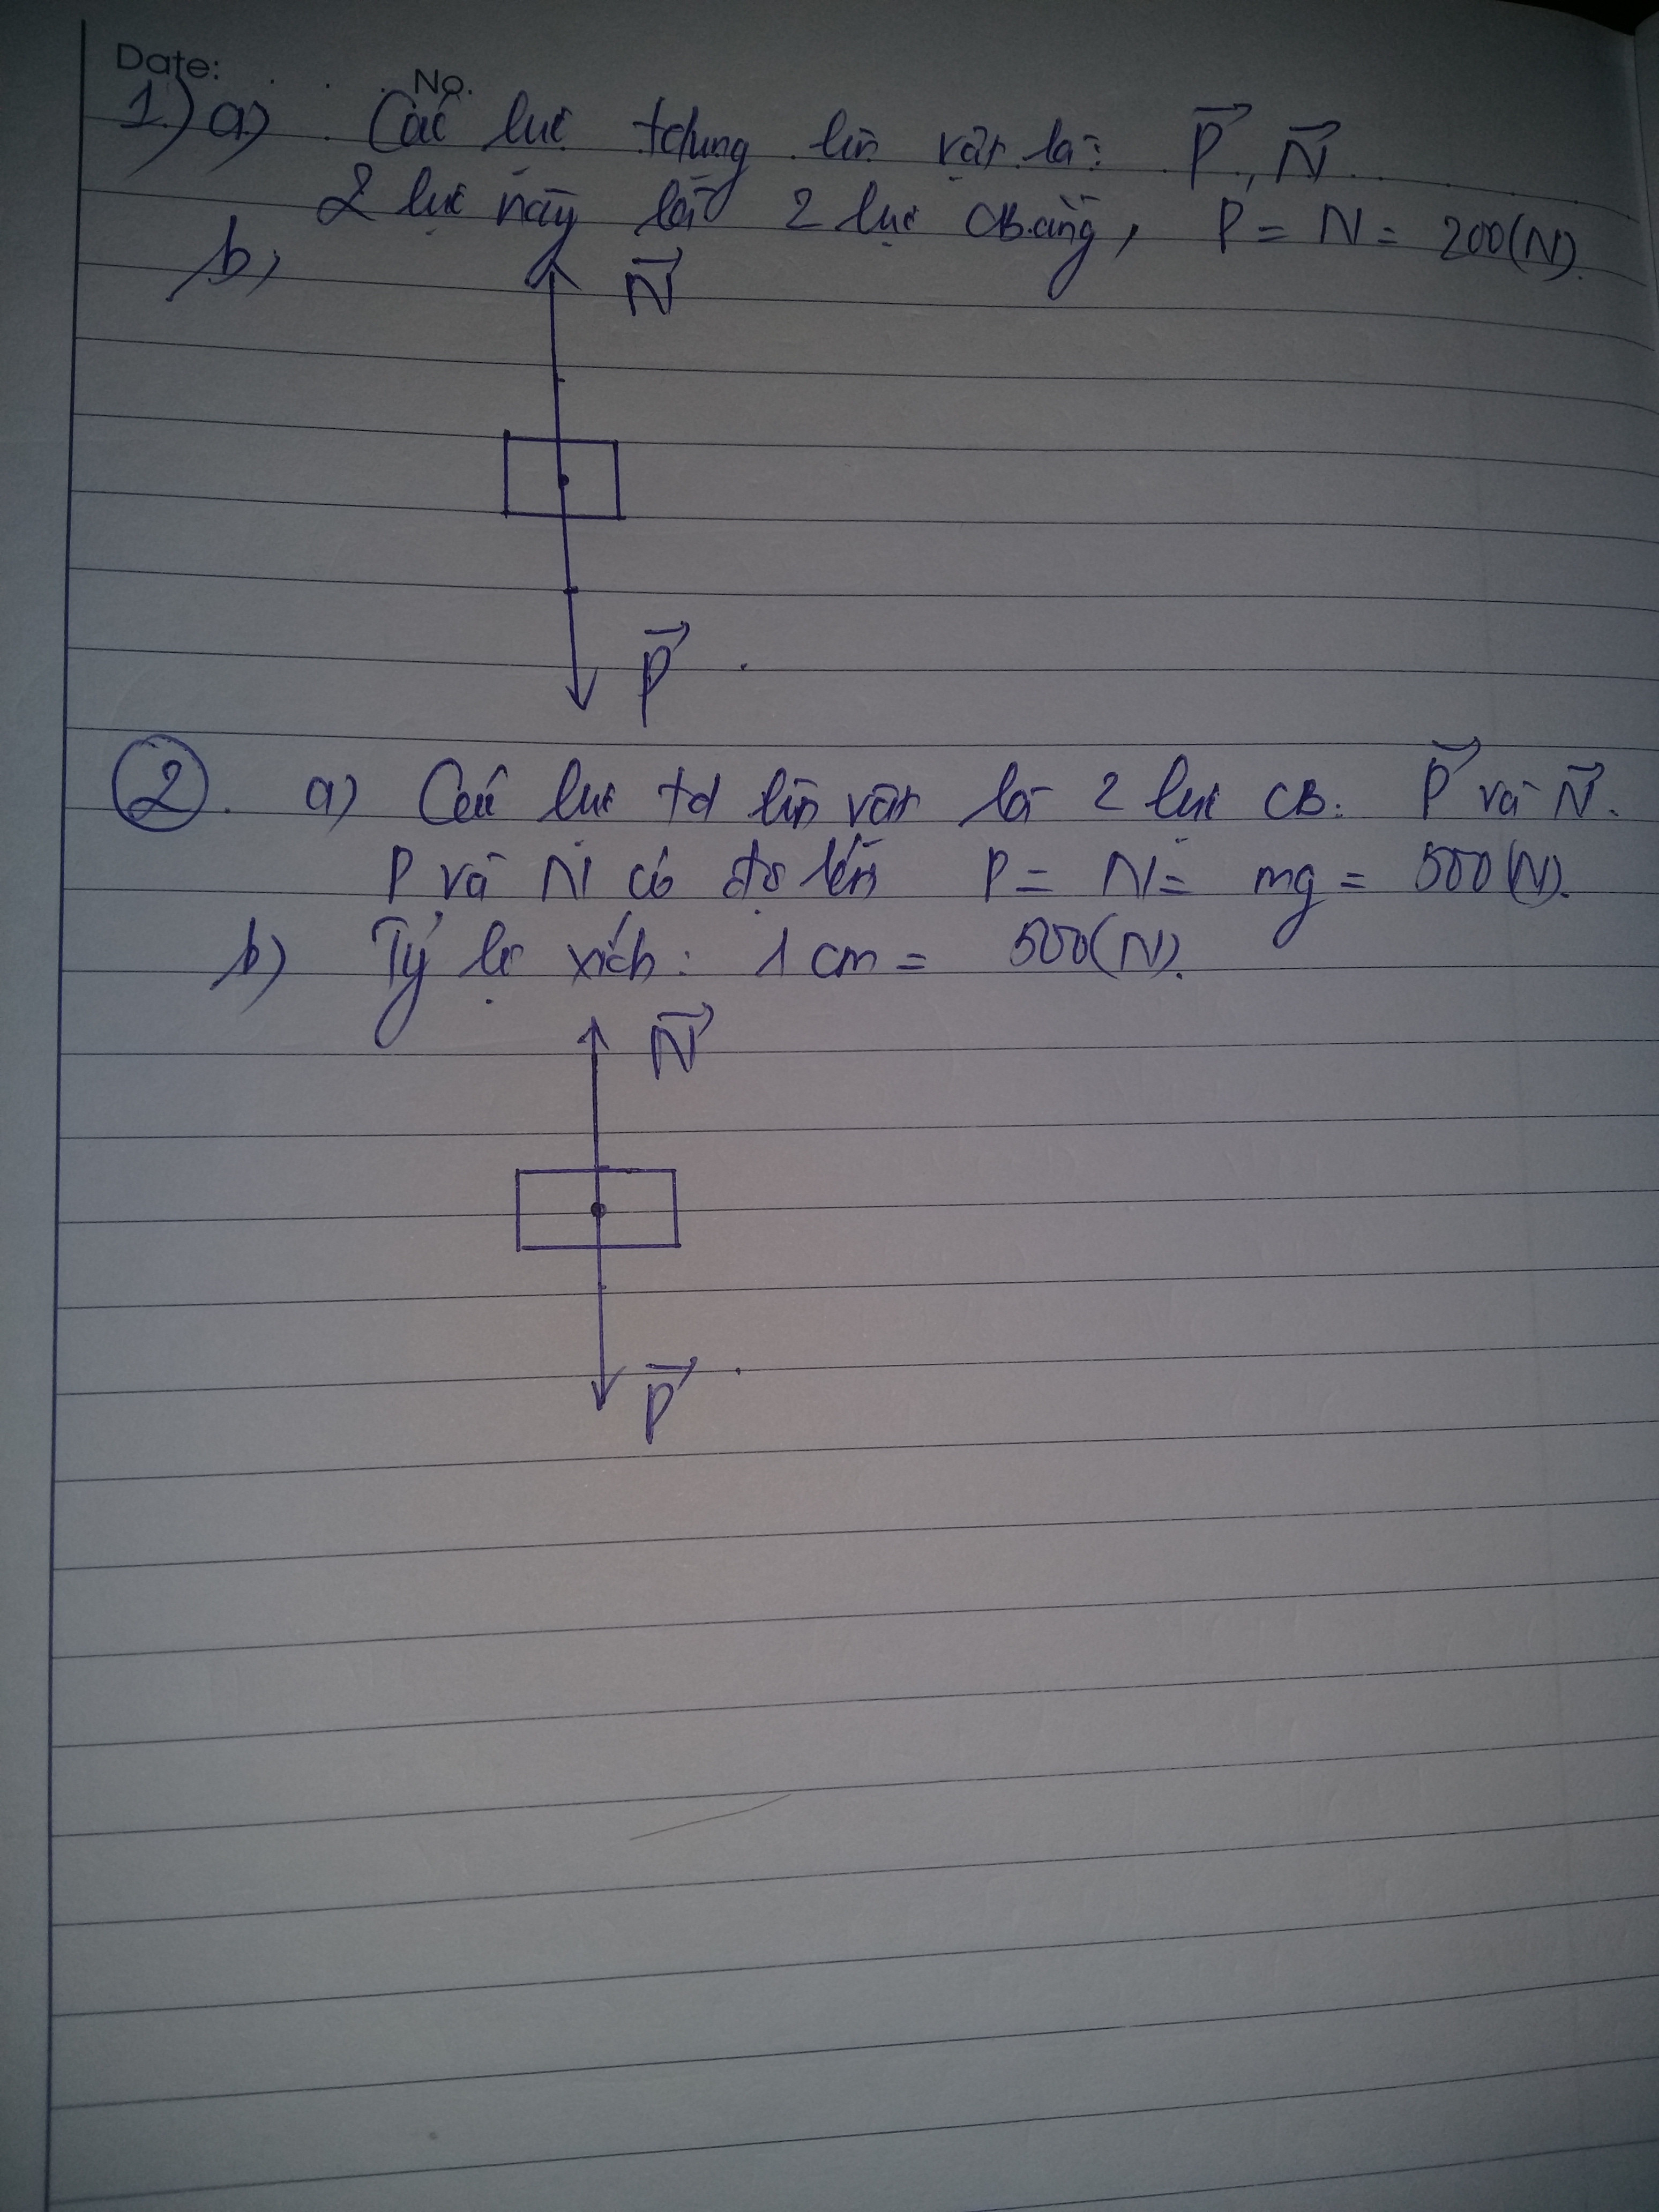 Date: No.
1) a) Các lực tdụng lên vật là: P, N
2 lực này là 2 lực CBằng, P = N = 200(N).
b, N
P
2. a) Các lực td lên vật là 2 lực CB: P và N.
P và N có độ lớn P = N = mg = 500(N).
b) Tỷ lệ xích: 1 cm = 500(N).
N
P